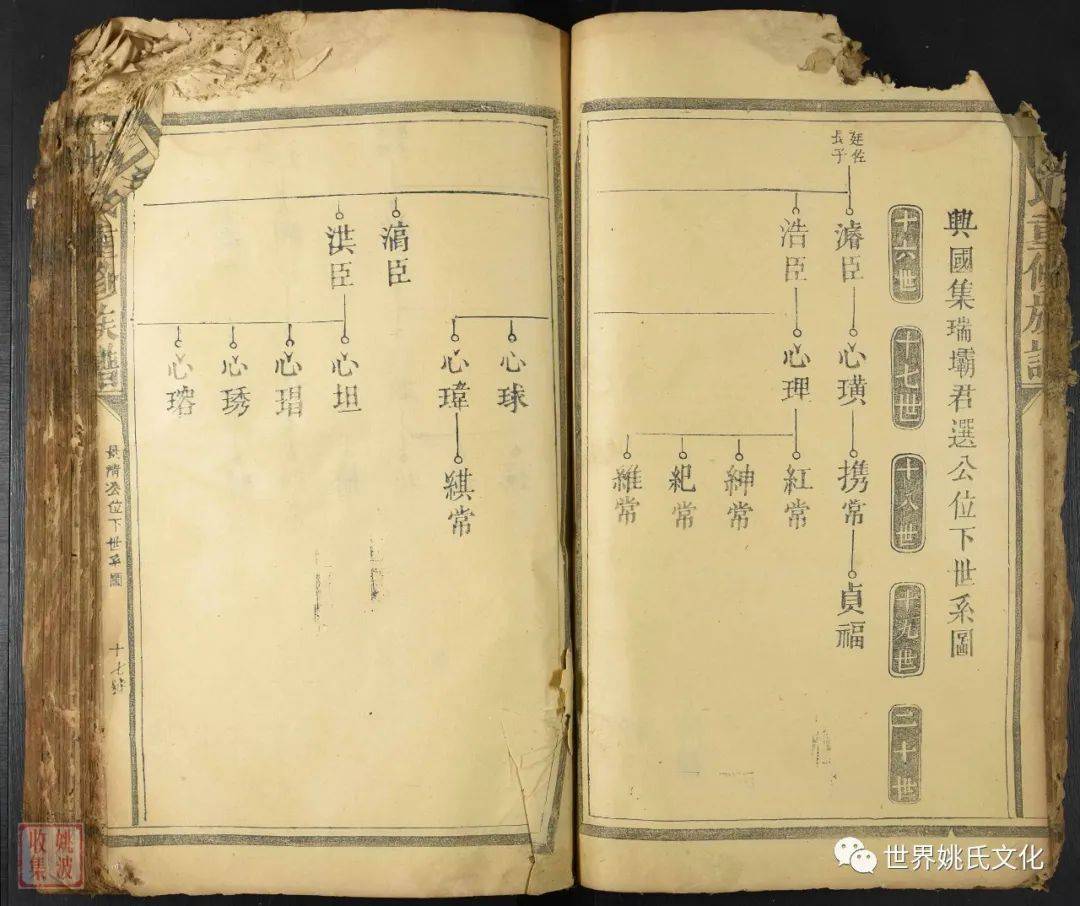 重修族譜
興國集瑞壩君選公位下世系圖
十六世
十七世
十八世
十九世
二十世
廷佐
長子
濬臣
心璜
携常
貞福
浩臣
心理
紅常
紳常
紀常
維常
滈臣
心球
心瑋
綨常
洪臣
心坦
心琩
心琇
心瑢
重修族譜
公位下世系圖
十七
姚波
收集
世界姚氏文化